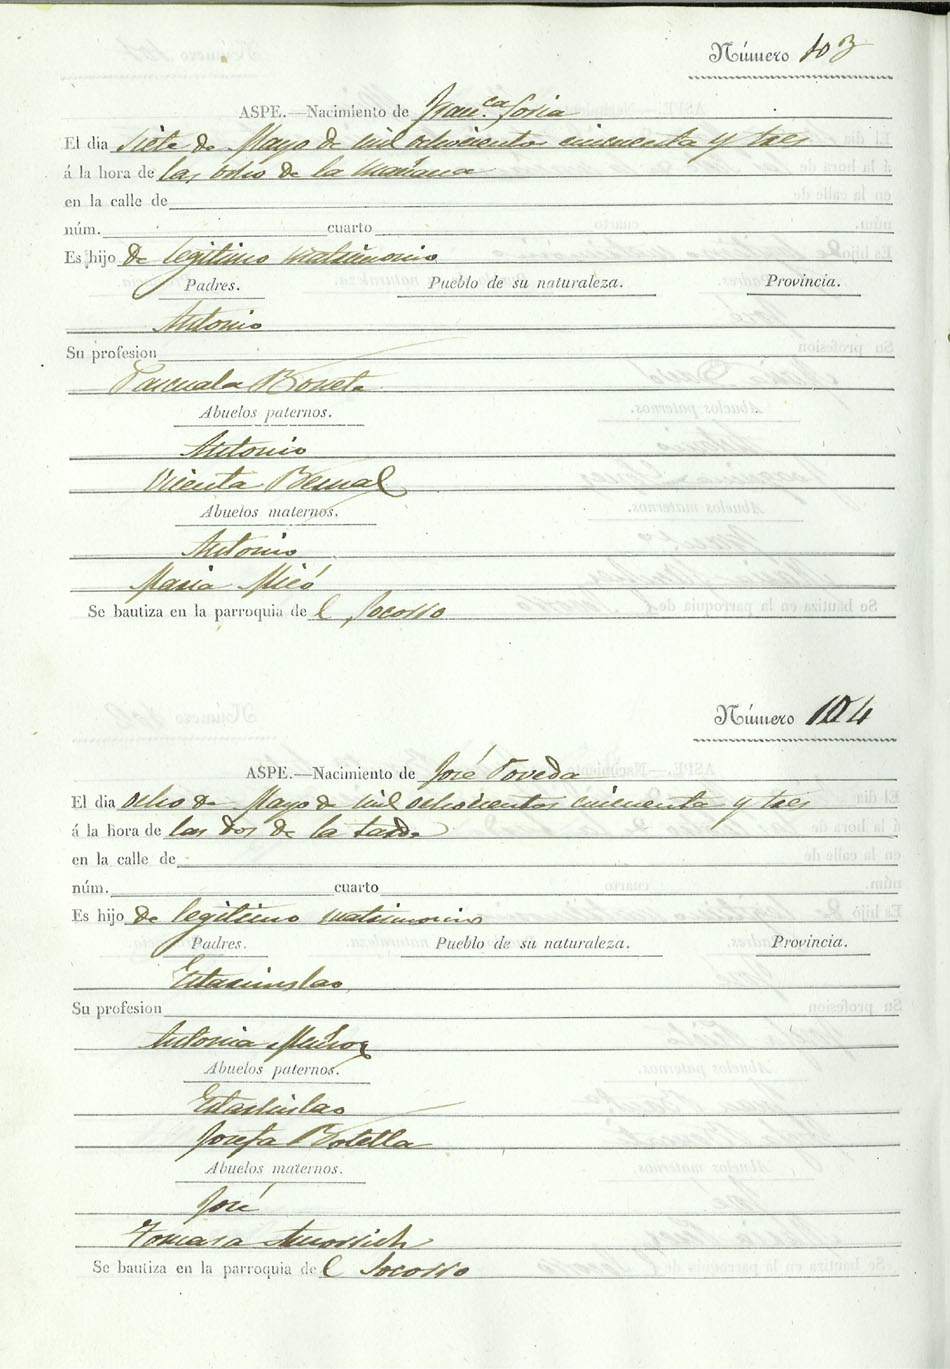 Número 103
ASPE.—Nacimiento de Fran.ca Soria
El dia siete de Mayo de mil ochocientos cincuenta y tres
á la hora de las ocho de la mañana
en la calle de
núm. cuarto
Es hijo de legitimo matrimonio
Padres. Pueblo de su naturaleza. Provincia.
Antonio
Su profesion
Pascuala Boneta
Abuelos paternos.
Antonio
Vicenta Bernal
Abuelos maternos.
Antonio
Maria Micó
Se bautiza en la parroquia de l Socorro
Número 104
ASPE.—Nacimiento de José Poveda
El dia ocho de Mayo de mil ochocientos cincuenta y tres
á la hora de las dos de la tarde
en la calle de
núm. cuarto
Es hijo de legitimo matrimonio
Padres. Pueblo de su naturaleza. Provincia.
Estanislao
Su profesion
Antonia Muñoz
Abuelos paternos.
Estanislao
Josefa Botella
Abuelos maternos.
José
Tomasa
Se bautiza en la parroquia de l Socorro